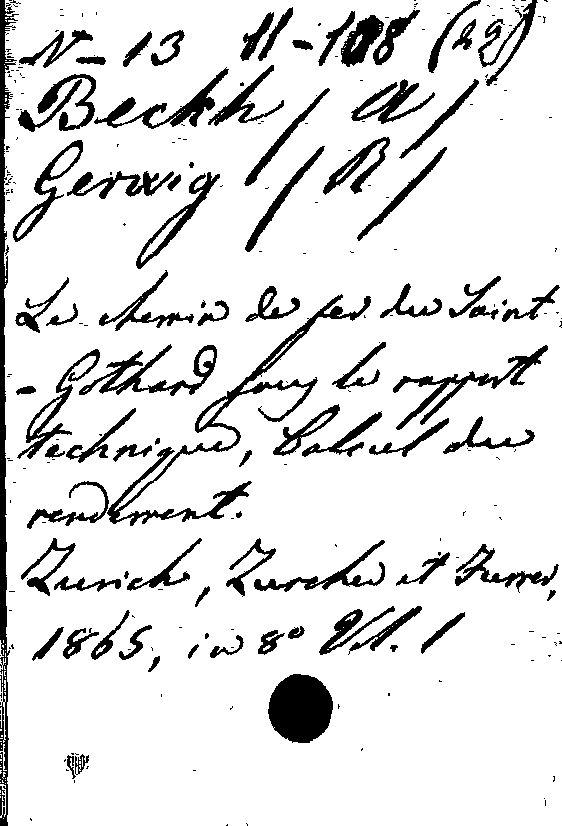 N- 13 11-108 (22)
Beckh / A /
Gerwig / R /
Le chemin de fer du Saint
- Gothard sous le rapport
technique, Calcul du
rendement.
Zurich, Zurcher et Furrer,
1865, in 8° Vol. 1